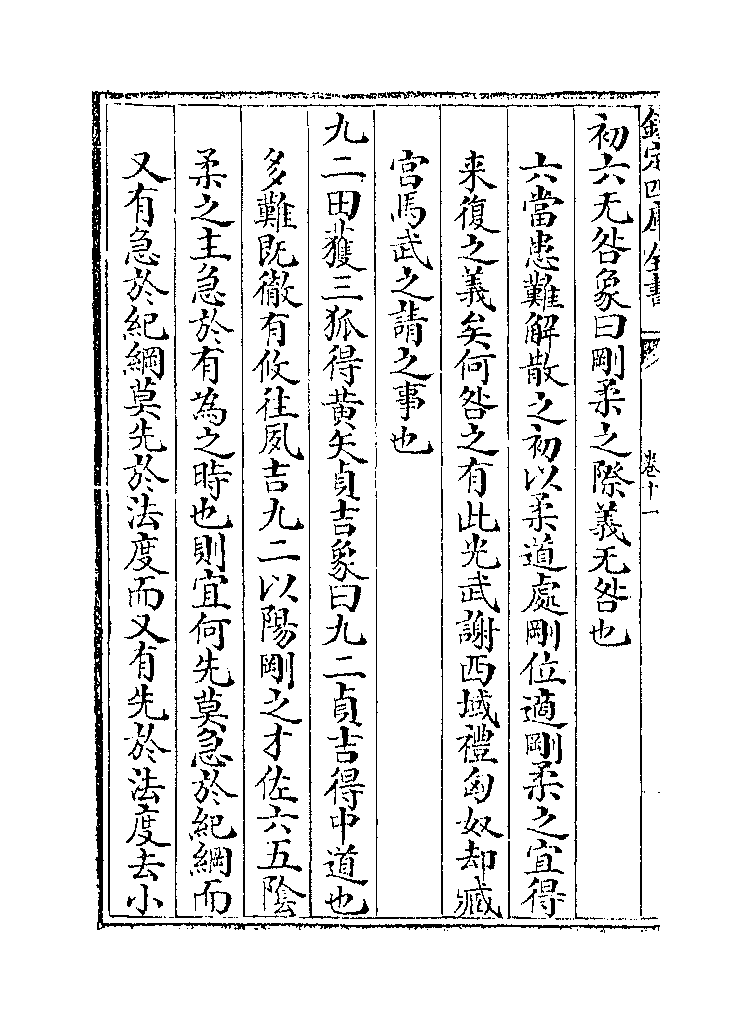 欽定四庫全書
卷十一
初六无咎象曰剛柔之際義无咎也
六當患難解散之初以柔道處剛位適剛柔之宜得
来復之義矣何咎之有此光武謝西域禮匈奴却臧
宫馬武之請之事也
九二田獲三狐得黄矢貞吉象曰九二貞吉得中道也
多難既徹有攸往夙吉九二以陽剛之才佐六五陰
柔之主急於有為之時也則宜何先莫急於紀綱而
又有急於紀綱莫先於法度而又有先於法度去小